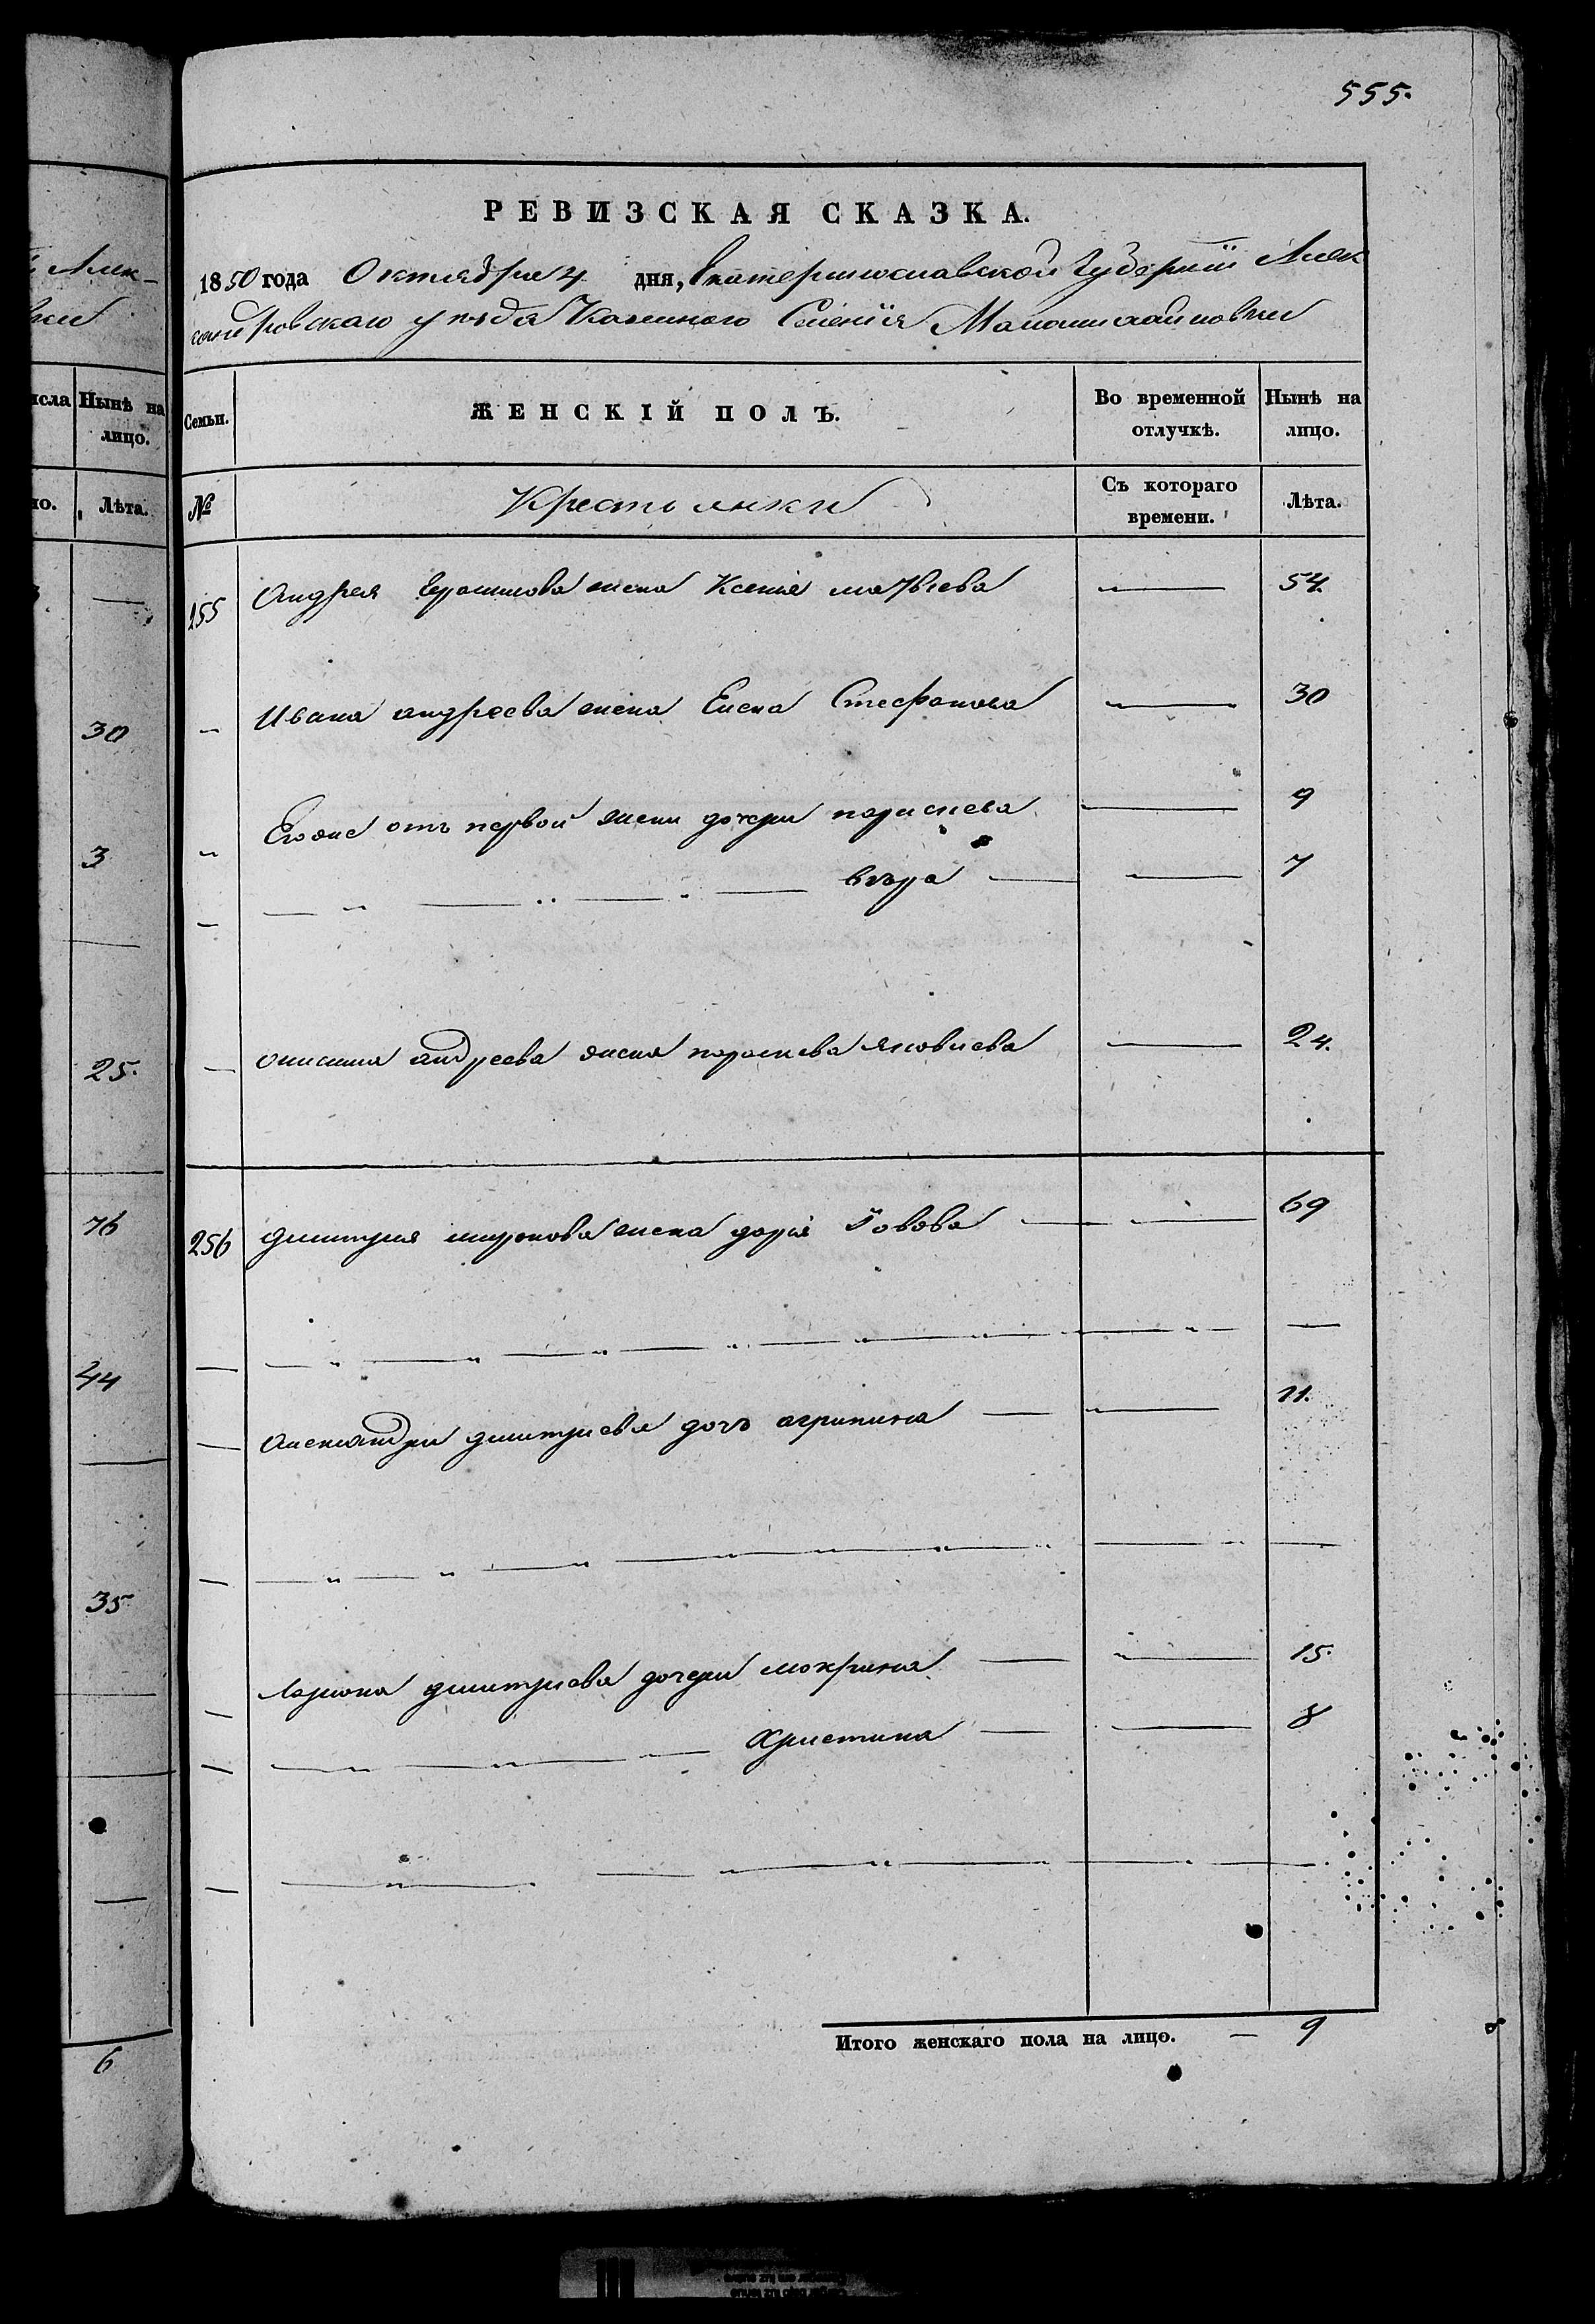 555.
РЕВИЗСКАЯ СКАЗКА.
1850 года Октября 4 дня, Екатеринославской Губерніи Алек
сандровскаго уѣзда Казеннаго Селенія
Семьи. ЖЕНСКІЙ ПОЛЪ. Во временной отлучкѣ. Нынѣ на лицо.
№ Крестьянки Съ котораго времени. Лѣта.
155 Андрея жена Ксенія матвѣева — 54.
Ивана андреева жена Елена Стефанова — 30
Его же отъ первой жены дочери параскева — 9
вѣра — 7
онисима андреева жена параскева Яковлева — 24.
256 дмитрия миронова жена дарія Іовова — 69
александра дмитриева дочь агрипина — 11.
лариона дмитриева дочери мокрина — 15.
Христина — 8
Итого женскаго пола на лицо. — 9
Алек-
исла Нынѣ на лицо.
но. Лѣта.
30
3
25.
76
44
35
6